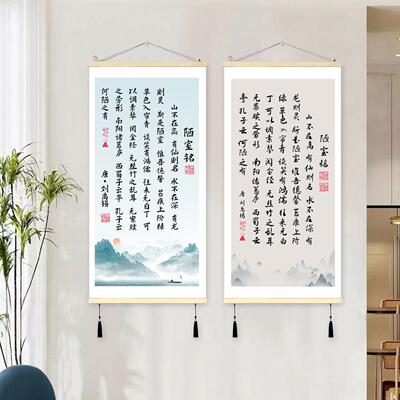 陋室铭
山不在高 有仙则名 水不在深 有龙
则灵 斯是陋室 惟吾德馨 苔痕上阶绿
草色入帘青 谈笑有鸿儒 往来无白丁 可
以调素琴 阅金经 无丝竹之乱耳 无案牍
之劳形 南阳诸葛庐 西蜀子云亭 孔子云
何陋之有
唐·刘禹锡
陋室铭
山不在高 有仙则名 水不在深 有
龙则灵 斯是陋室 惟吾德馨 苔痕上阶
绿 草色入帘青 谈笑有鸿儒 往来无白
丁 可以调素琴 阅金经 无丝竹之乱耳
无案牍之劳形 南阳诸葛庐 西蜀子云
亭 孔子云 何陋之有
唐·刘禹锡